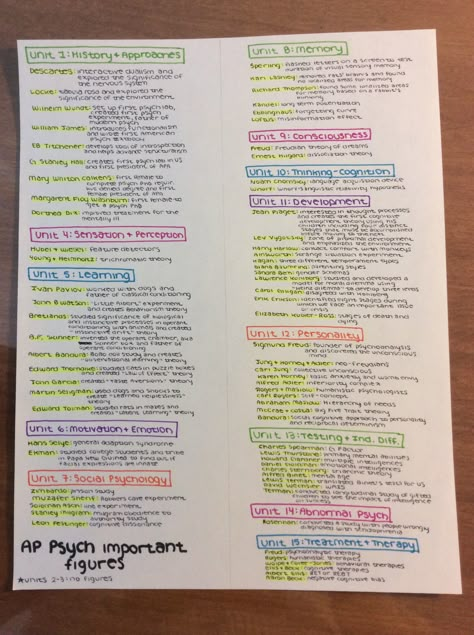 Unit 1: History + Approaches
Descartes: interactive dualism and
explored the significance of
the nervous system
Locke: tabula rosa and explored the
significance of the environment
Wilhelm Wundt: set up first psych lab,
created first psych
experiment, father of
modern psych
William James: introduced functionalism
and wrote first American
psych textbook
EB Titchener: develops tool of introspection
and helps advance structuralism
G. Stanley Hall: created first psych lab in US
and first president of APA
Mary Whiton Calkins: first female to
complete psych PhD requir.
but denied degree and first
female president of APA
Margaret Floy Washburn: first female to
get a psych PhD
Dorthea Dix: improved treatment for the
mentally ill
Unit 4: Sensation + Perception
Hubel + Wiesel: feature detectors
Young + Helmholtz: trichromatic theory
Unit 5: Learning
Ivan Pavlov: worked w/ dogs and
father of classical conditioning
John B Watson: "Little Albert" experiment,
and created behaviorism theory
Brelands: studied significance of biological
instinctive processes in operant
conditioning with animals and created
"instinctive drift" theory
B.F. Skinner: invented the operant chamber, aka
"Skinner" box and father of
operant conditioning
Albert Bandura: Bobo doll study and creates
"observational learning" theory
Edward Thorndike: studied cats in puzzle boxes
and creates "Law of Effect" theory
John Garcia: creates "taste aversions" theory
Martin Seligman: used dogs and shocks to
create "learned helplessness"
theory
Edward Tolman: studied rats in mazes and
creates "latent learning" theory
Unit 6: Motivation + Emotion
Hans Selye: general adaption syndrome
Ekman: studied college students and tribe
in Papa New Guinea to find out if
facial expressions are innate
Unit 7: Social Psychology
Zimbardo: prison study
Muzafer Sherif: Robbers cave experiment
Solomon Asch: line experiment
Stanley Milgram: Milgram obedience to
authority study
Leon Festinger: cognitive dissonance
AP Psych important
figures
*units 2-3: no figures
Unit 8: Memory
Sperling: flashed letters on a screen to test
duration of visual sensory memory
Karl Lashley: removed rats' brains and found
no localized areas for memory
Richard Thompson: found some localized areas
for memory based on a rabbit's
Kandel: long term potentiation
Ebbinghaus: forgetting curve
Loftus: misinformation effect
Unit 9: Consciousness
Freud: Freudian theory of dreams
Ernest Hilgard: dissociation theory
Unit 10: Thinking + Cognition
Noam Chomsky: language acquisition device
Whorf: Whorf's linguistic relativity hypothesis
Unit 11: Development
Jean Piaget: interested in thought processes
and creates the first cognitive
development theory using his
children including four distinct
stages that must be accomplished
before moving to the next
Lev Vygotsky: zone of proximal development
and emphasizes the environment
Harry Harlow: contact comfort with monkeys
Ainsworth: strange situation experiment
Kagan: three different temperament types
Diana Baumrind: parenting styles
Sandra Bem: gender schemas
Lawrence Kohlberg: studied and developed a
model for moral dilemma using
to develop three stages
Carol Gilligan: disagreed with Kohlberg
Eric Erikson: identified eight stages during
which we face an important issue
or crisis
Elizabeth Kubler-Ross: stages of death and
dying
Unit 12: Personality
Sigmund Freud: founder of psychoanalysis
and discovered the unconscious
mind
Jung + Horney + Adler: neo-Freudians
Carl Jung: collective unconscious
Karen Horney: basic anxiety and womb envy
Alfred Adler: inferiority complex
Rogers + Maslow: humanistic psychologists
Carl Rogers: self-concept
Abraham Maslow: hierarchy of needs
McCrae + Costa: Big Five trait theory
Bandura: social cognitive approach to personality
and reciprocal determinism
Unit 13: Testing + Ind. Diff.
Charles Spearman: G Factor
Lewis Thurstone: primary mental abilities
Howard Gardner: multiple intelligences
Daniel Goleman: emotional intelligence
Charles Sternberg: triarchic theory
Alfred Binet: mental age
Lewis Terman: translated Binet's tests for US
David Wechsler: WAIS
Terman: conducted longitudinal study of gifted
children to see the impact of intelligence
on success
Unit 14: Abnormal Psych
Rosenhan: conducted a study with people wrongly
diagnosed with schizophrenia
Unit 15: Treatment + Therapy
Freud: psychoanalytic therapy
Rogers: humanistic therapies
Wolpe + Cover-Jones: behavioral therapies
Ellis + Beck: cognitive therapies
Albert Ellis: RET or REBT
Aaron Beck: negative cognitive triad